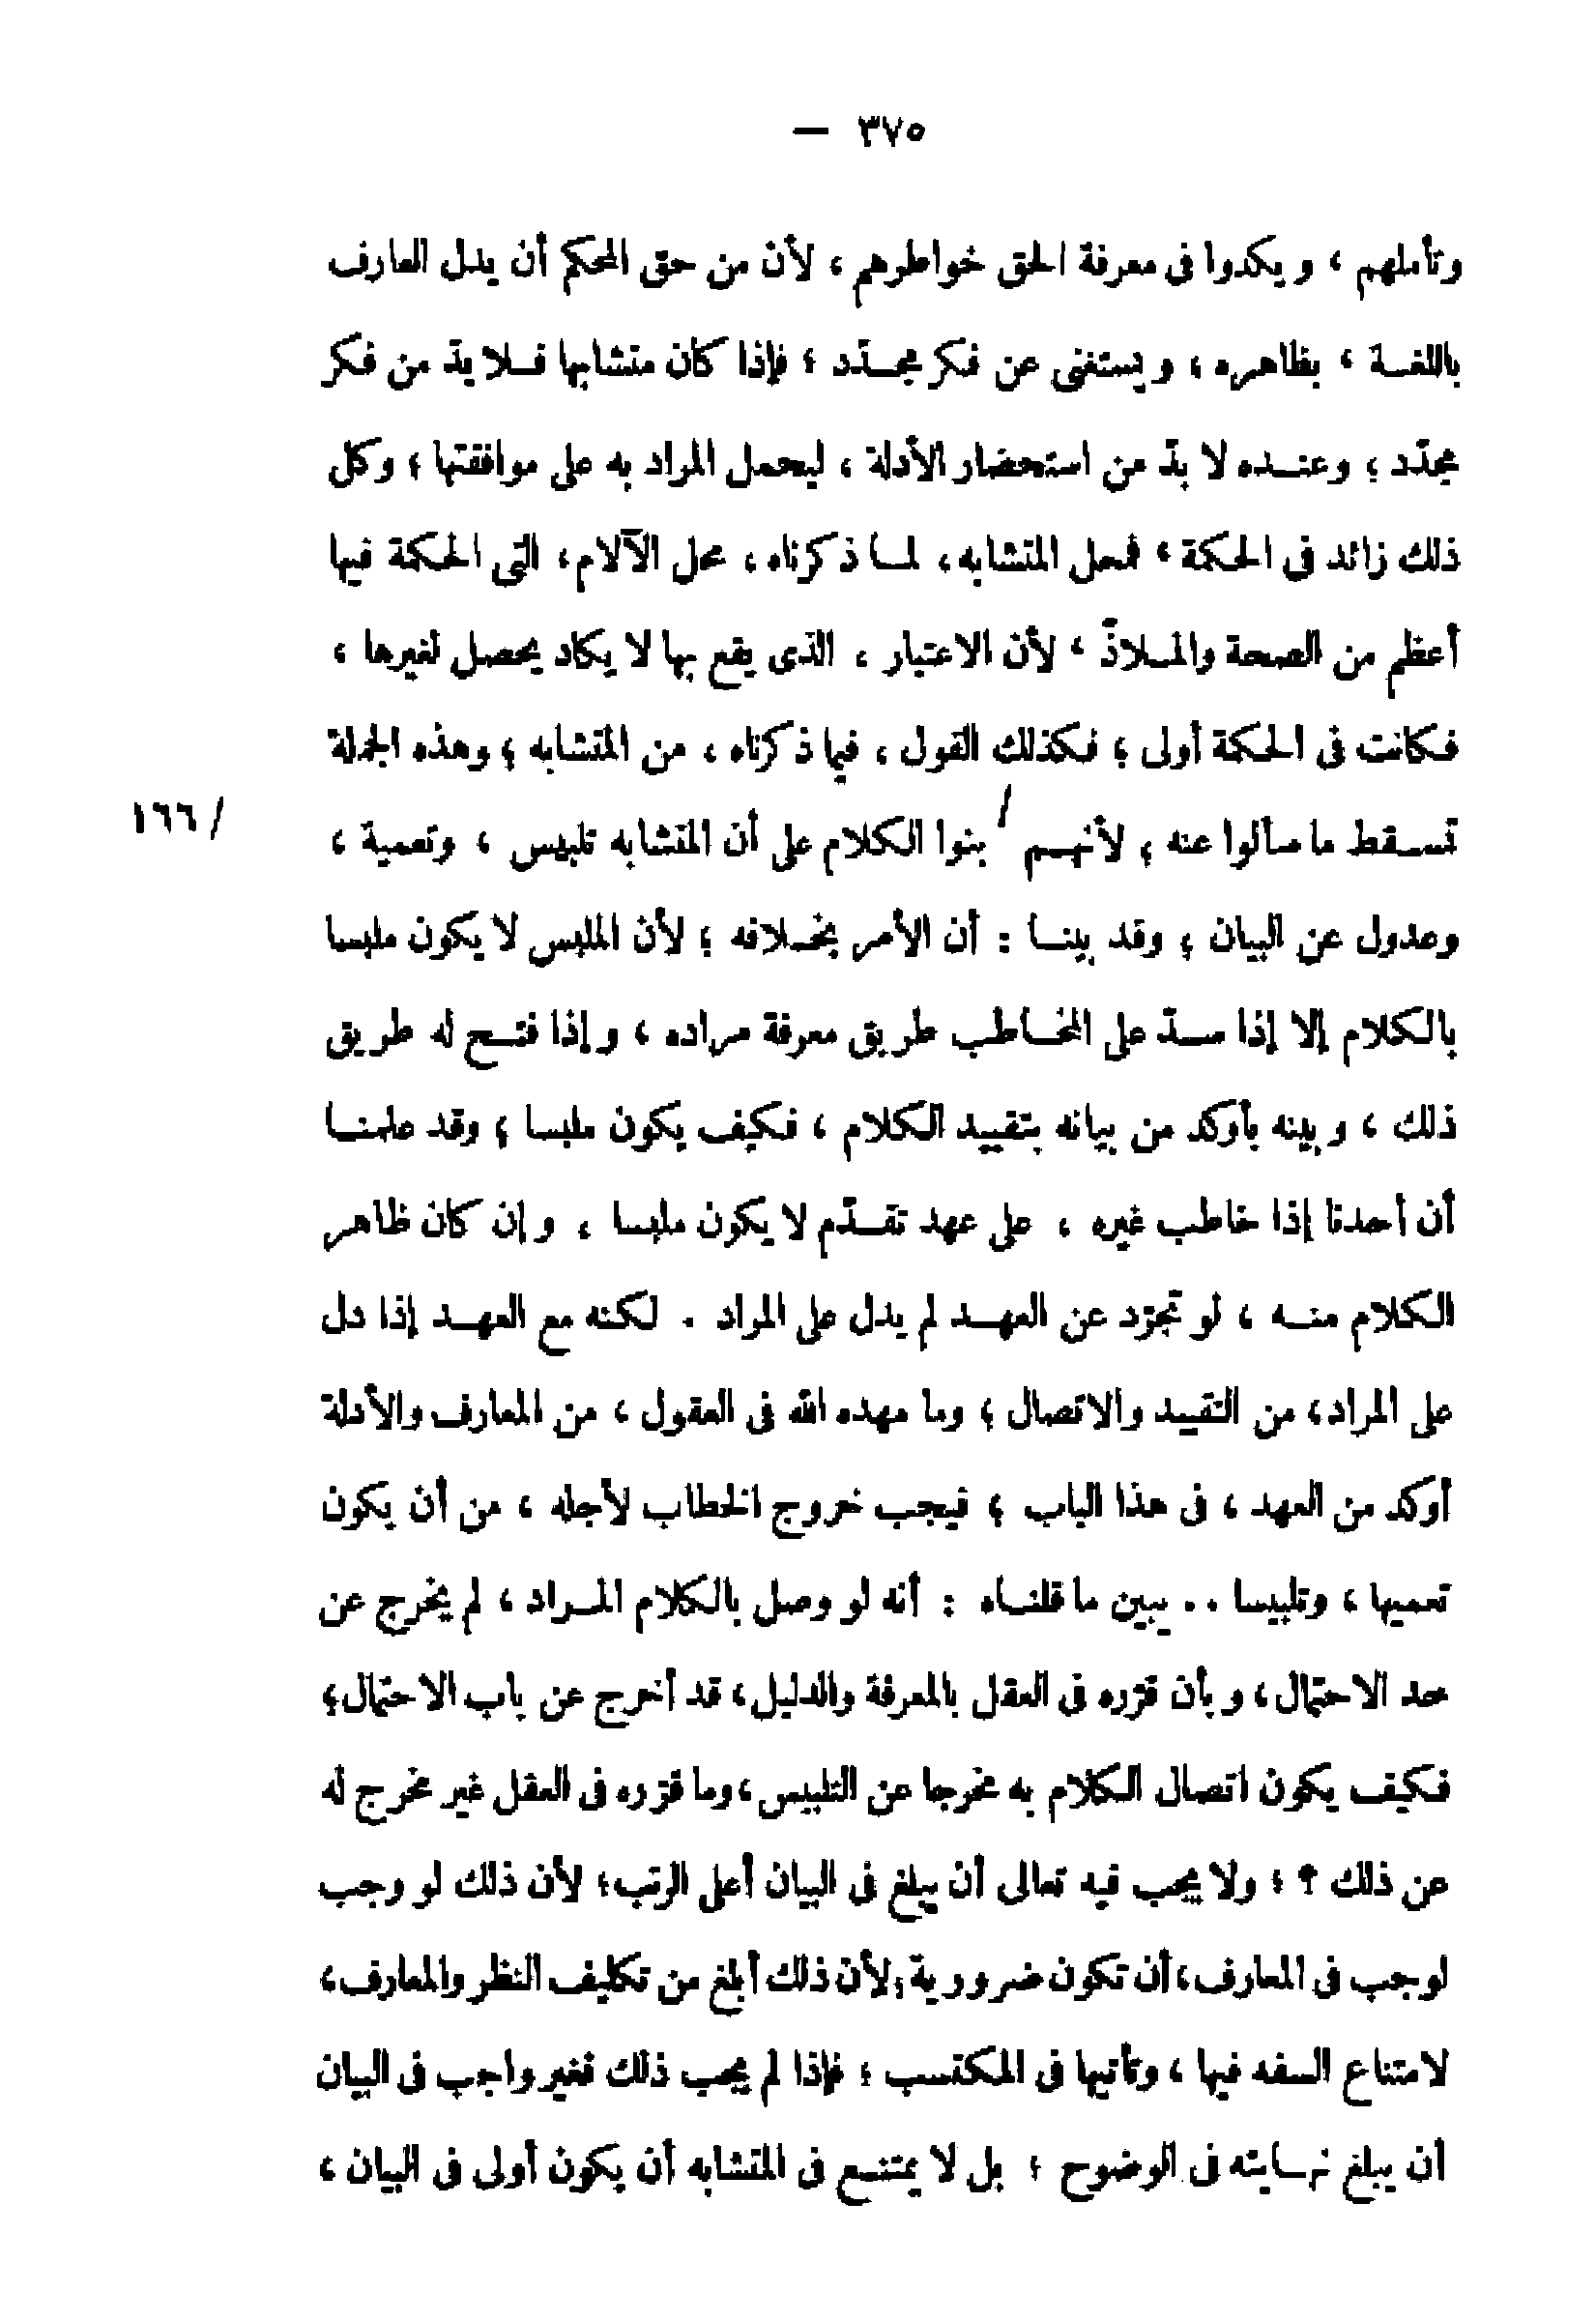 ٣٧٥ —
وتأملهم ، ويكدوا فى معرفة الحق خواطرهم ، لأن من حق المحكم أن يدل العارف
باللغـة ، بظاهره ، ويستغنى عن فكر مجـدّد ؛ فإذا كان متشابها فـلا بدّ من فكر
مجدّد ؛ وعنـده لا بدّ من استحضار الأدلة ، ليحمل المراد به على موافقتها ؛ وكل
ذلك زائد فى الحكمة ، فمحل المتشابه ، لمـا ذكرناه ، محل الآلام ، التى الحكمة فيها
أعظم من الصحة والمـلاذّ ، لأن الاعتبار ، الذى يقع بها لا يكاد يحصل لغيرها ،
فكانت فى الحكمة أولى ؛ فكذلك القول ، فيما ذكرناه ، من المتشابه ؛ وهذه الجملة
تسـقط ما سألوا عنه ؛ لأنهـم / بنوا الكلام على أن المتشابه تلبيس ، وتعمية ،
/ ١٦٦
وعدول عن البيان ؛ وقد بينـا : أن الأمر بخـلافه ؛ لأن الملبس لا يكون ملبسا
بالكلام إلا إذا سـدّ على المخـاطب طريق معرفة مراده ، وإذا فتـح له طريق
ذلك ، وبينه بأوكد من بيانه بتقييد الكلام ، فكيف يكون ملبسا ؛ وقد علمنـا
أن أحدنا إذا خاطب غيره ، على عهد تقـدّم لا يكون ملبسا ، وإن كان ظاهر
الكلام منـه ، لو تجرّد عن العهـد لم يدل على المراد . لكنه مع العهـد إذا دل
على المراد ، من التقييد والاتصال ؛ وما مهده الله فى العقول ، من المعارف والأدلة
أوكد من العهد ، فى هذا الباب ؛ فيجب خروج الخطاب لأجله ، من أن يكون
تعميها ، وتلبيسا . . يبين ما قلنـاه : أنه لو وصل بالكلام المـراد ، لم يخرج عن
حد الاحتمال ، وبأن قرّره فى العقل بالمعرفة والدليل ، قد أخرج عن باب الاحتمال ؛
فكيف يكون اتصال الكلام به مخرجا عن التلبيس ، وما قرّره فى العقل غير مخرج له
عن ذلك ؟ ؛ ولا يجب فيه تعالى أن يبلغ فى البيان أعلى الرتب ؛ لأن ذلك لو وجب
لوجب فى المعارف ، أن تكون ضرورية ؛ لأن ذلك أبلغ من تكليف النظر والمعارف ،
لامتناع السفه فيها ، وتأتيها فى المكتسب ؛ فإذا لم يجب ذلك فغير واجب فى البيان
أن يبلغ نهـايته فى الوضوح ؛ بل لا يمتنـع فى المتشابه أن يكون أولى فى البيان ،